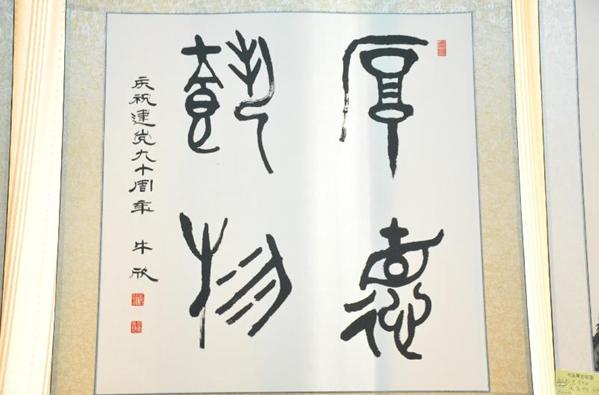 厚德
載物
庆祝建党九十周年 牛欣